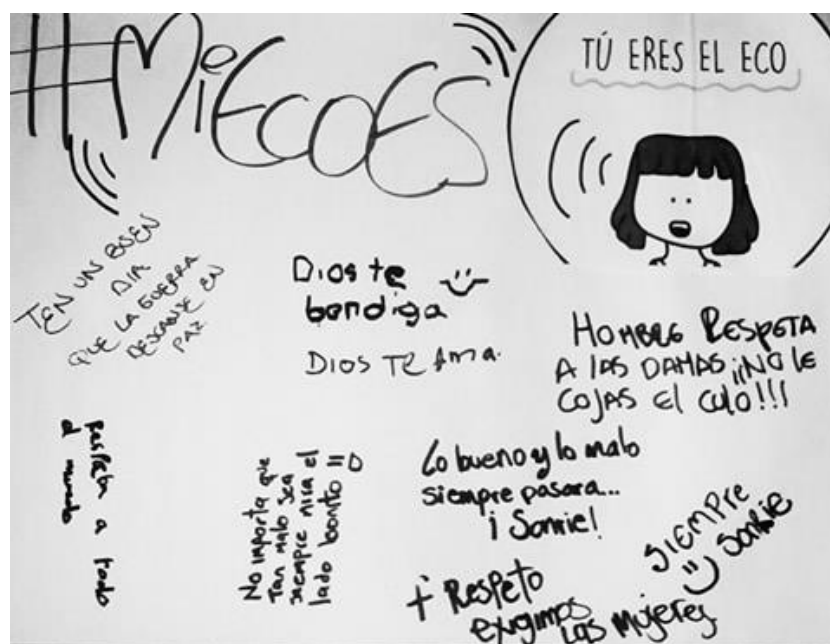 #MiEcoES
TÚ ERES EL ECO
TEN UN BUEN
DIA
QUE LA GUERRA
DESCANSE EN
PAZ
Dios te
bendiga
DIOS TE Ama.
HOMBRE RESPETA
A LAS DAMAS ¡¡NO LE
COJAS El CULO!!!
Respeta a todo
el mundo
No importa que
tan malo sea
siempre mira el
lado bonito =D
Lo bueno y lo malo
siempre pasara...
¡Sonrie!
SIEMPRE
Sonrie
+ Respeto
exigimos
Las Mujeres